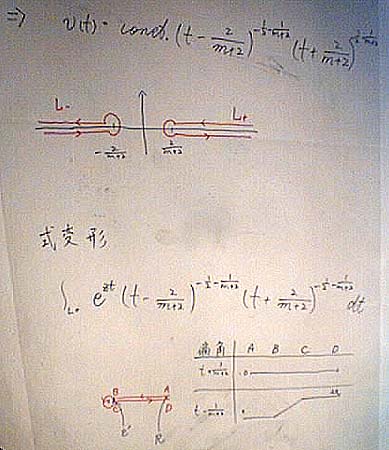 ⇒ v(t) = const. (t - 2/(m+2))^{-1/2 - 1/(m+2)} (t + 2/(m+2))
L- L+
-2/(m+2) 2/(m+2)
式変形
∫ e^{zt} (t - 2/(m+2))^{-1/2 - 1/(m+2)} (t + 2/(m+2))^{-1/2 - 1/(m+2)} dt
偏角 A B C D
t + 2/(m+2) 0
B A
C D
R